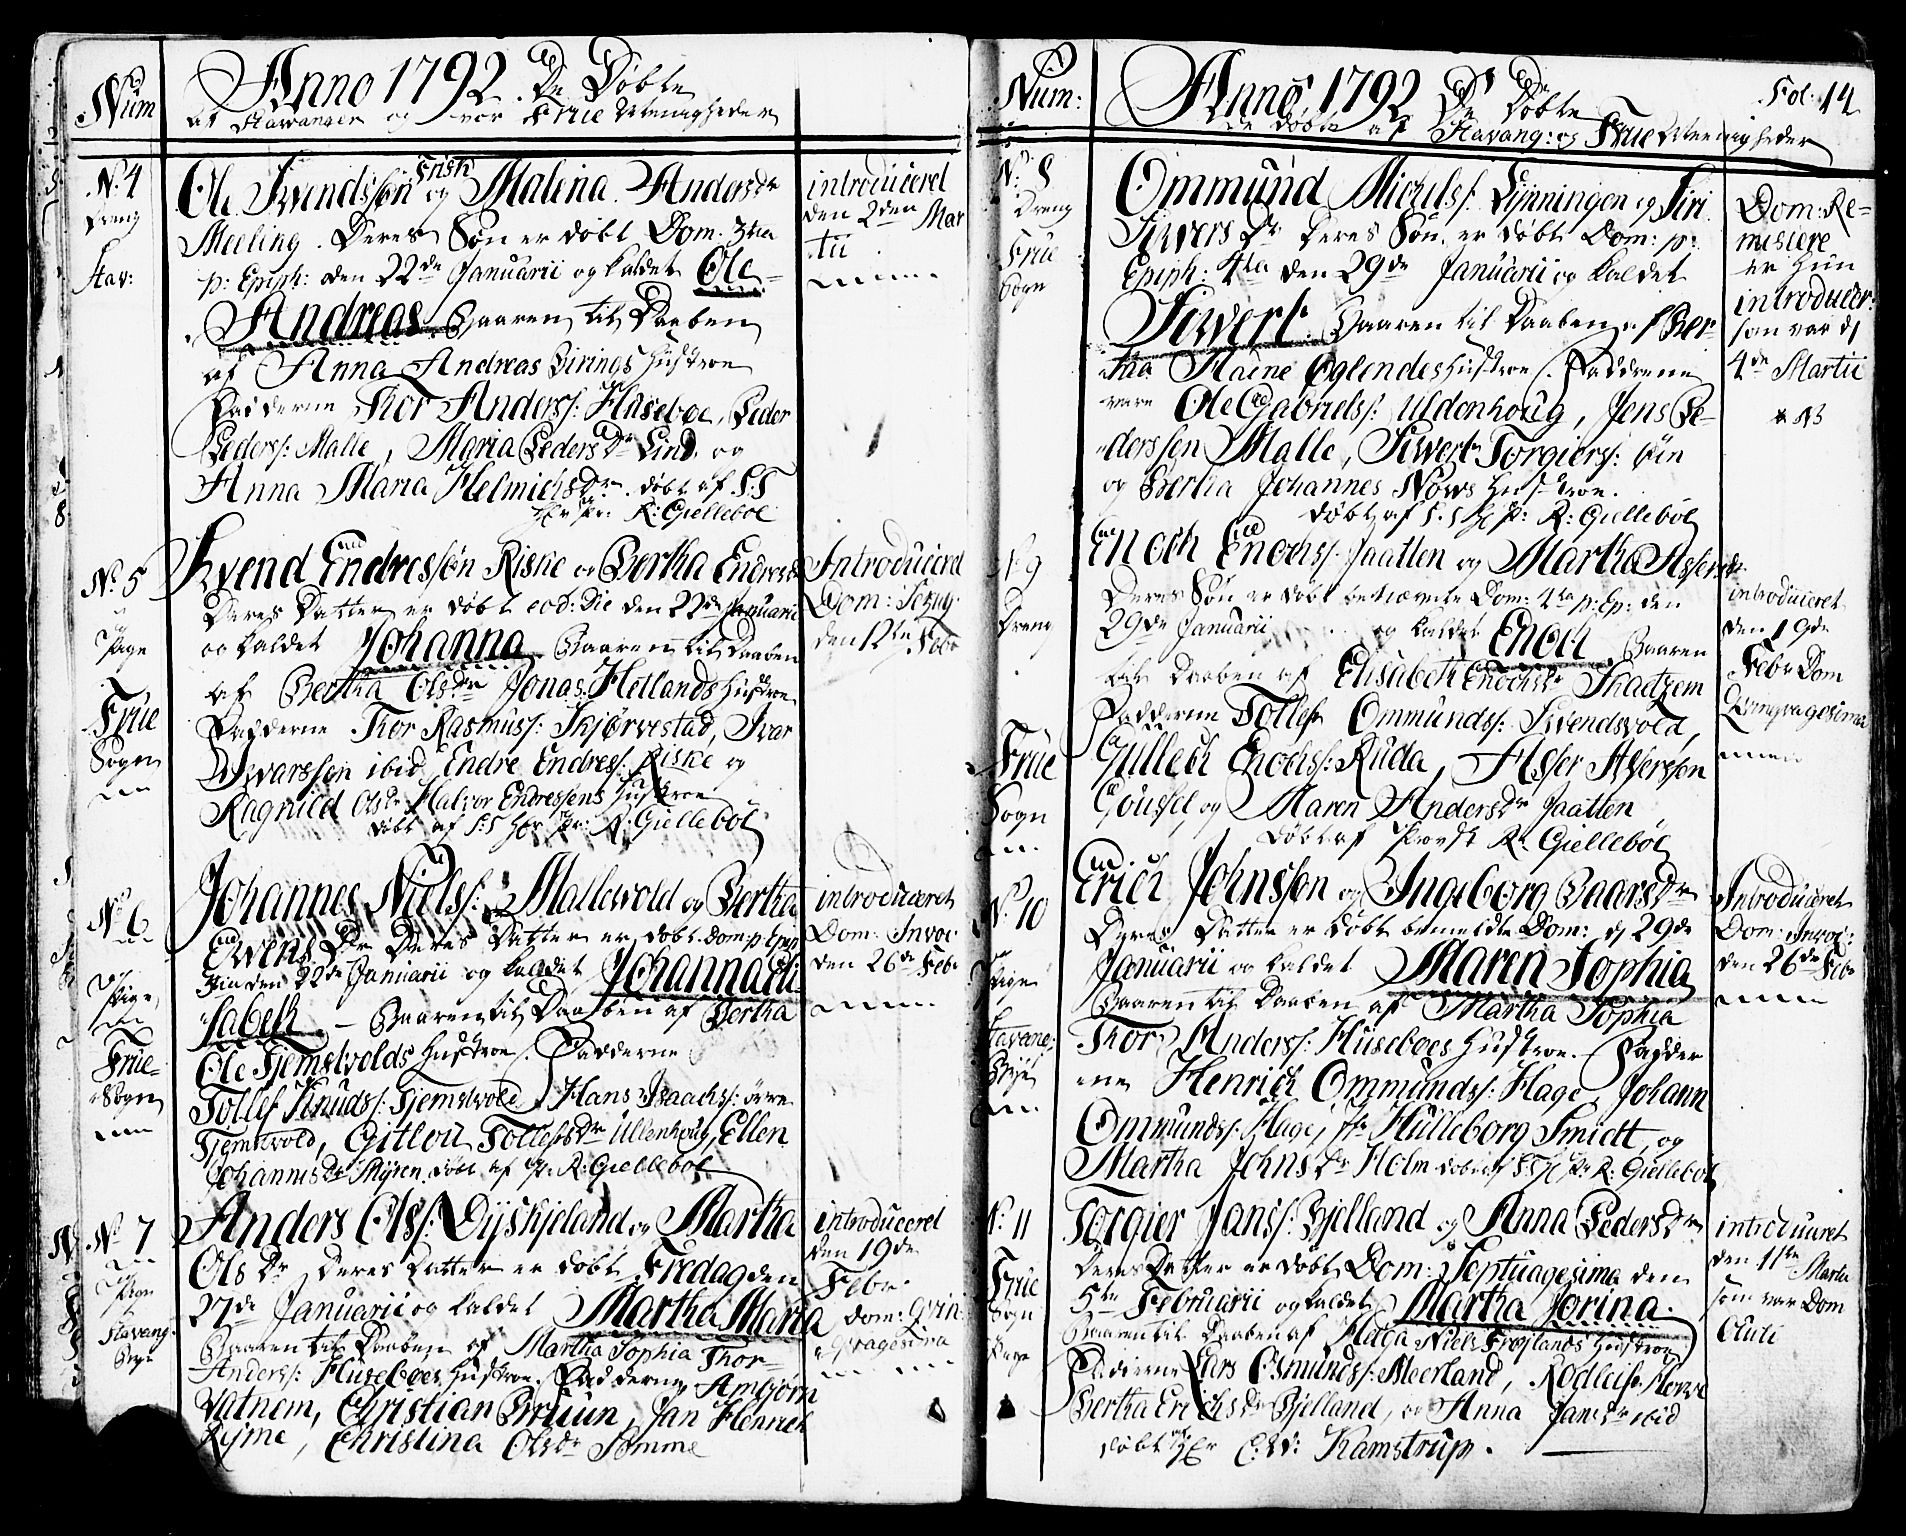 Num
Anno 1792. De Døbte
af Stawanger og vor Frue Menigheder
N: 4
Dreng
Stav:
Ole Svendssøn Frish og Malena Andersdr
Meeling. Deres Søn er døbt Dom. 3tia
p: Epiph: den 22de Januarii og kaldet Ole
Andreas. Baaren til Daaben
af Anna Andreas Birings Hustroe
Fadderne Thor Anderss: Huseboe, Peder
Pederss: Malle, Maria Pedersdr Lind, og
Anna Maria Helmichsdr. døbt af S:S
Hr Pr: R: Giellebøl
introduceret
den 2den Mar
tii
N: 5
Pige
Frue
Sogn
Svend Endressøn Riske og Bertha Endresdr
Deres Datter er døbt eod: Die den 22de Januarii
og kaldet Johanna Baaren til Daaben
af Bertha Olsdr Jonas Hetlands Hustroe
Fadderne Thor Rasmuss: Skjørvestad, Ivar
Iwarssen ibid, Endre Endress: Riske og
Ragnild Olsdr Halvor Endressens Hustroe
døbt af S:S Hr Pr: R: Giellebøl
Introduceret
Dom: Sexag.
den 12te Febr
N: 6
Pige
Frue
Sogn
Johannes Niels: Mallewold og Bertha
Ewens Dr Deres Datter er døbt Dom: p Epip
3tia den 22de Januarii og kaldet Johanna Eli-
sabeth. - Baaren til Daaben af Bertha
Ole Tjemsvolds Hustroe. Fadderne
Tollef Knuds: Tjemsvold, Hans Isaachs: øvre
Tjemsvold, Gitlou Tollefsdr Ullenhoug, Ellen
Johannisdr Myren. døbt af Pr: R: Giellebøl
introduceret
Dom: Invoc:
den 26de Febr
N: 7
Pige
Stavang:
Bye
Anders Olss: Dyskjeland og Martha
Ols Dr Deres Datter er døbt Fredag den
27de Januarii og kaldet Martha Maria
Baaren til Daaben af Martha Sophia Thor
Anderss: Huseboes Hustroe. Fadderne Ambjørn
Vatnem, Christian Bruun, Jan Henrich
Ryme, Christina Olsdr Somme
introduceret
den 19de
Febr.
Dom: Qvin
qvagesima
Num:
Anno 1792 De Døbte
De døbte af Stavang: og Frue Menigheder
Fol: 14
N: 8
Dreng
Frue
Sogn
Ommund Michelss: Lynningen og Siri
Siwers Dr Deres Søn er døbt Dom: p:
Epiph: 4ta den 29de Januarii og kaldet
Siwert. Baaren til Daaben af Ber-
tha Maene Øglendes Hustroe. Fadderne
vare Ole Gabrielss: Uldenhoug, Jens Pe-
derssen Malle, Siwert Torgierss:
og Bertha Johannes Nows Hustroe.
døbt af S:S Hr Pr: R: Giellebøl
Dom: Re-
misiere
er hun
introducer:
som var d
4de Martii
N: 9
Dreng
Frue
Sogn
Enoch Enochs: Jaatten og Martha Assersdr
Deres Søn er døbt bemeldte Dom: 4ta p: Ep: den
29de Januarii og kaldet Enoch Baaren
til Daaben af Elisabeth Enochsdr
Fadderne Tollef Ommunds: Svendsvold,
Gulleich Enochs: Ruda, Asser Asserssøn
Goussel, og Maren Andersdr Jaatten
døbt af Provst R: Giellebøl
introduceret
den 19de
Febr Dom
Qvinqvagesima
N: 10
Pige
Stavang:
Bye
Erich Johnssøn og Ingeborg Baarsdr
Deres Datter er døbt bemeldte Dom: d 29de
Januarii og kaldet Maren Sophia
Baaren til Daaben af Martha Sophia
Thor Anderss: Huseboes Hustroe. Fadder
ne Henrich Ommunds: Hage, Johann
Ommunds: Hage, Hulleborg Smidt, og
Martha Johns Dr Holm døbt af S:S Hr Pr R: Giellebøl
Introduceret
Dom: Invoc:
den 26de Febr
N: 11
Frue
Sogn
Pige
Torgier Janss: Bjelland og Anna Pedersdr
Deres Datter er døbt Dom: Septuagesima den
5te Februarii og kaldet Martha Jorina.
Baaren til Daaben af Helga Niels Frøjlands Hustroe
Fadderne Lars Osmunds: Meerland,
Bertha Erichsdr Bjelland, og Anna Jansdr ibid
døbt af Hr C: W: Kamstrup.
introduceret
den 11te Martii
som var Dom
Oculi